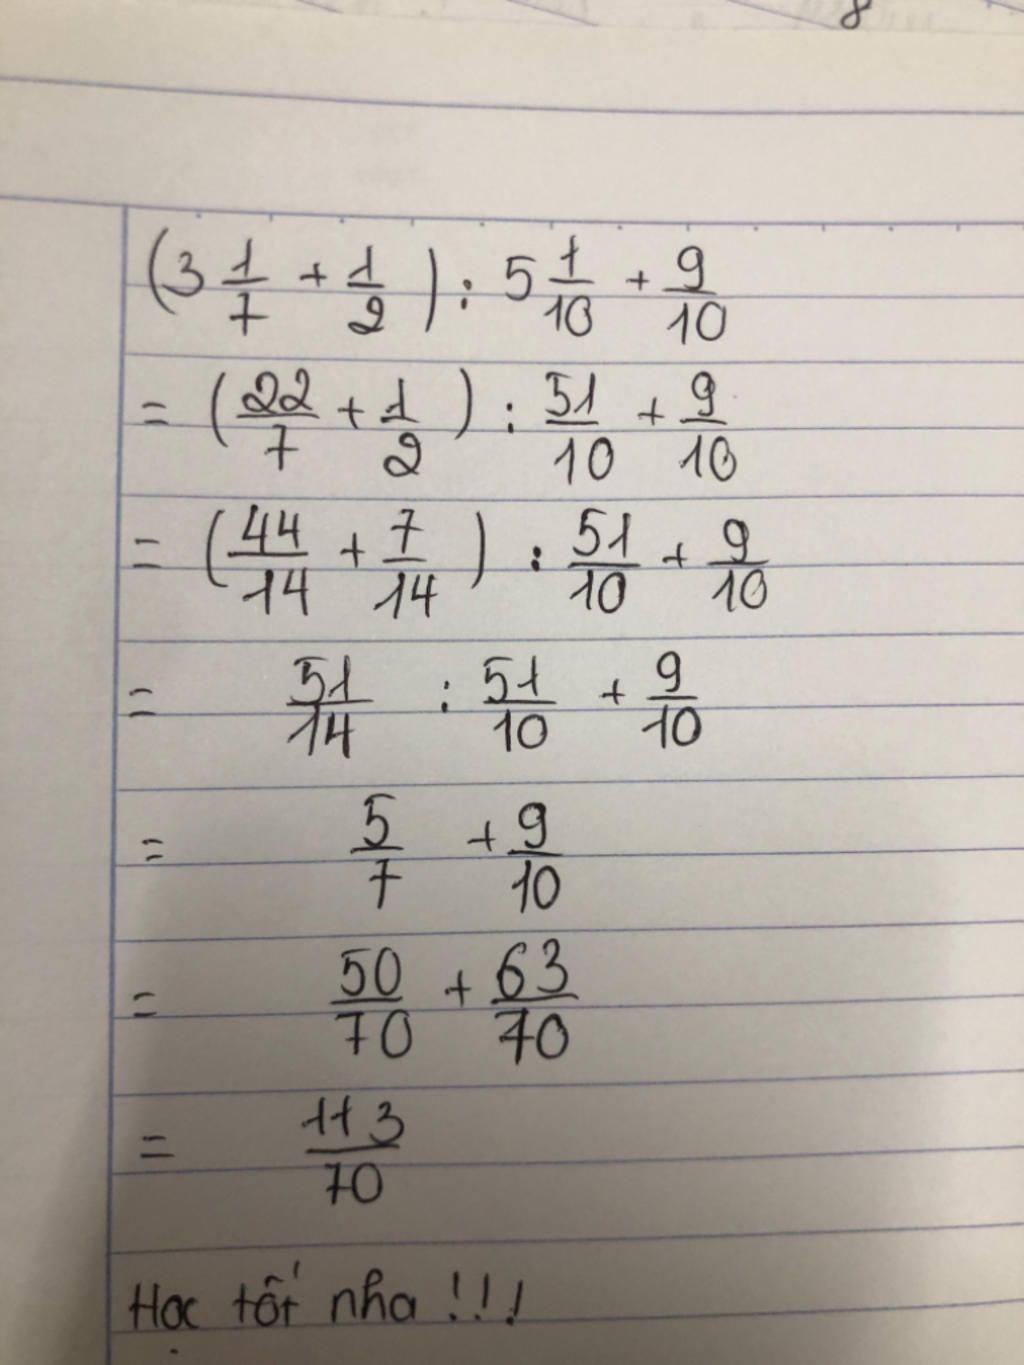 8
(3 1/7 + 1/2) : 5 1/10 + 9/10
= (22/7 + 1/2) : 51/10 + 9/10
= (44/14 + 7/14) : 51/10 + 9/10
= 51/14 : 51/10 + 9/10
= 5/7 + 9/10
= 50/70 + 63/70
= 113/70
Học tốt nha !!!